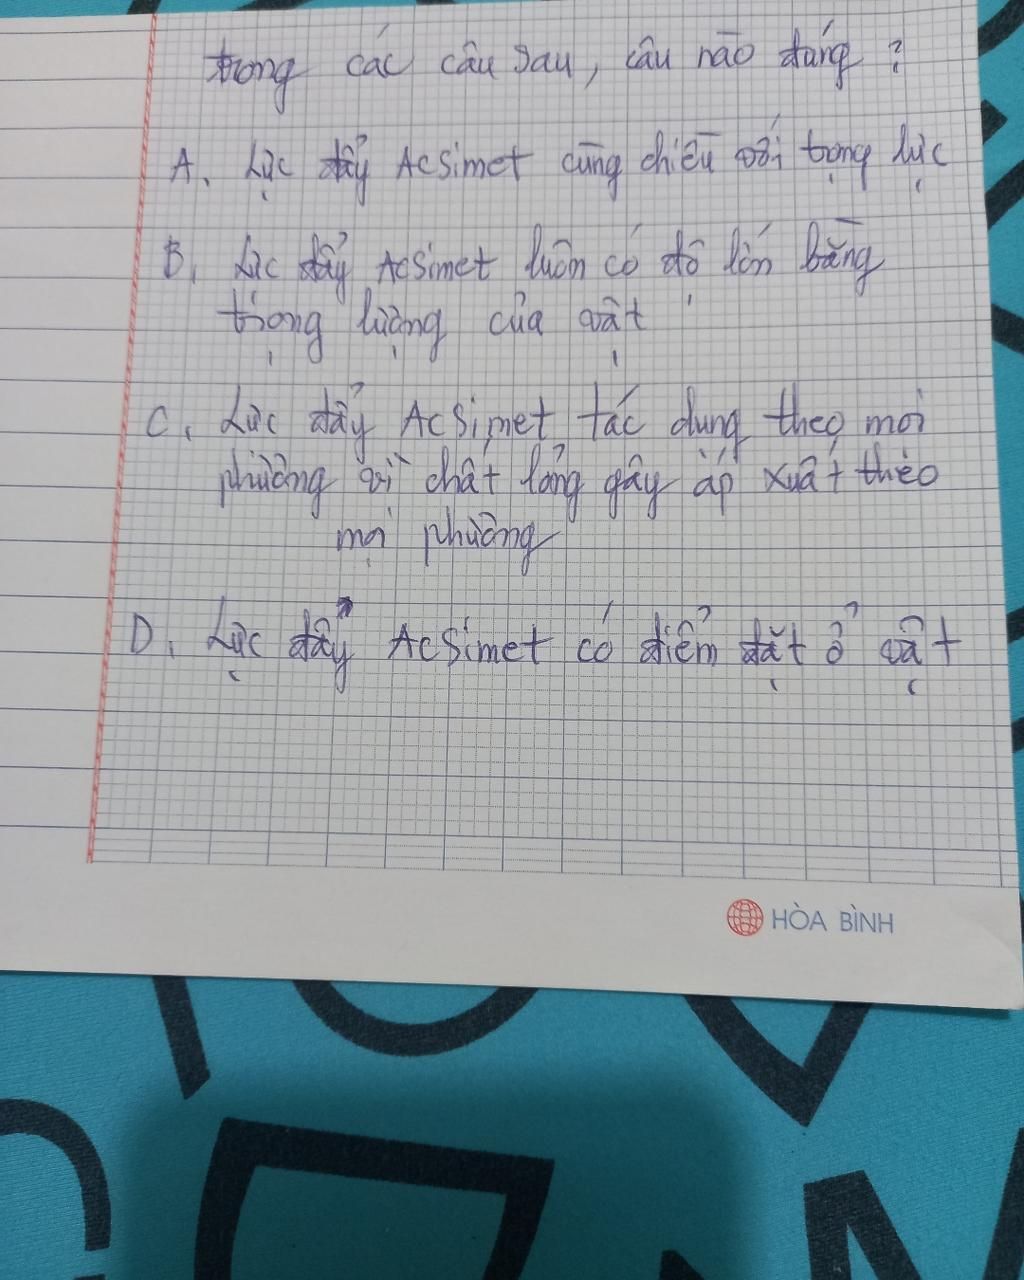 trong các câu sau, câu nào đúng ?
A. Lực đẩy Acsimet cùng chiều với trọng lực
B. Lực đẩy Acsimet luôn có độ lớn bằng
trọng lượng của vật
C. Lực đẩy Acsimet tác dụng theo mọi
phương vì chất lỏng gây áp xuất theo
mọi phương
D. Lực đẩy Acsimet có điểm đặt ở vật
HÒA BÌNH